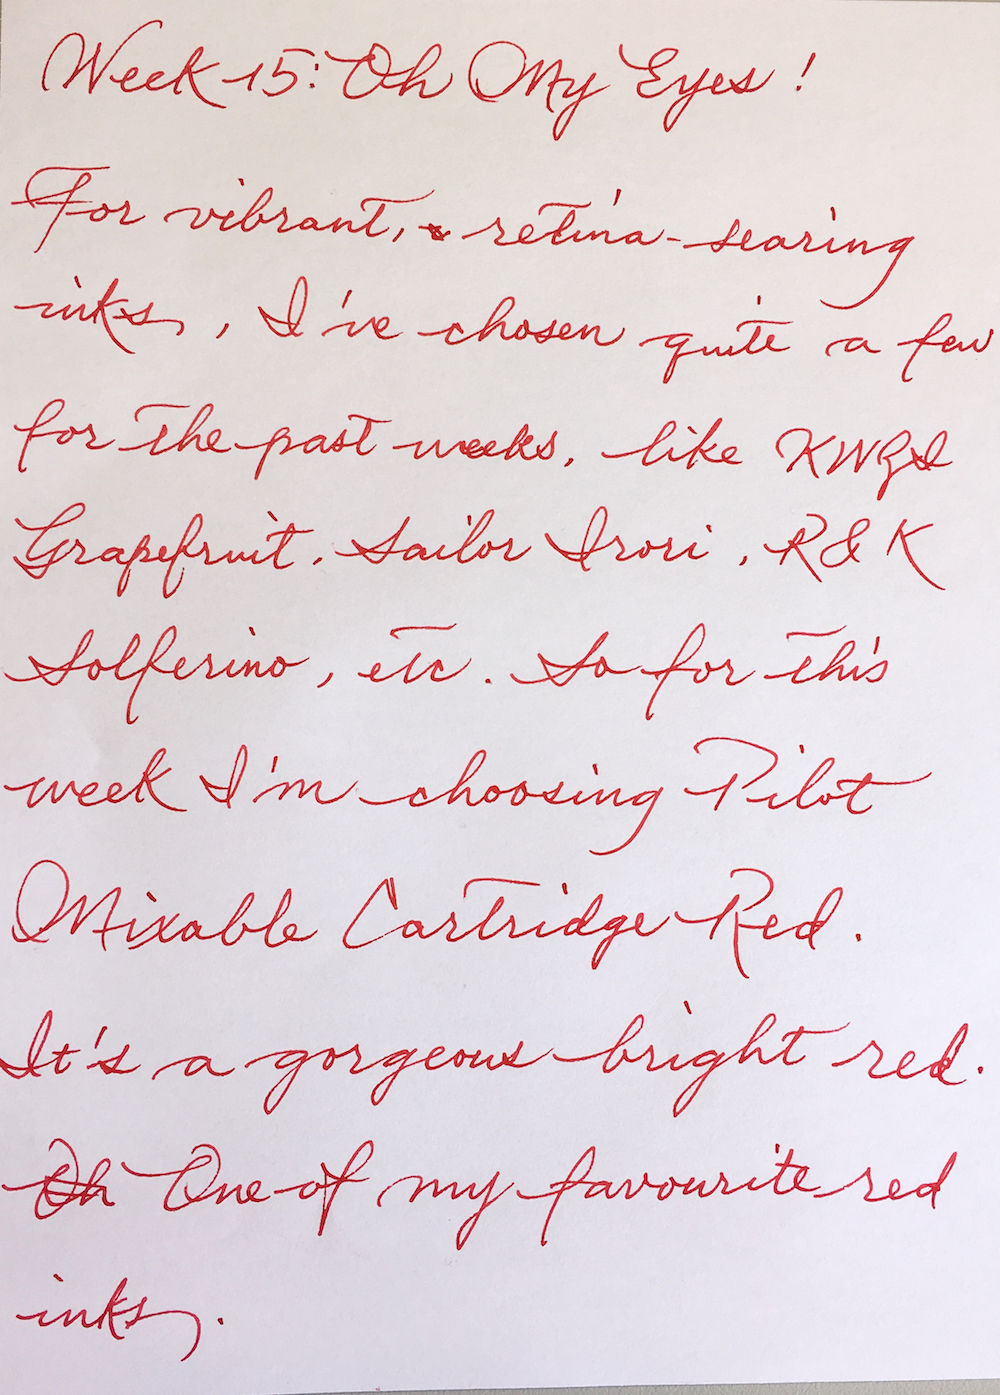 Week 15: Oh My Eyes!
For vibrant, retina-searing
inks, I've chosen quite a few
for the past weeks, like KWZI
Grapefruit, Sailor Irori, R&K
Solferino, etc. So for this
week I'm choosing Pilot
Mixable Cartridge Red.
It's a gorgeous bright red.
Oh One of my favourite red
inks.